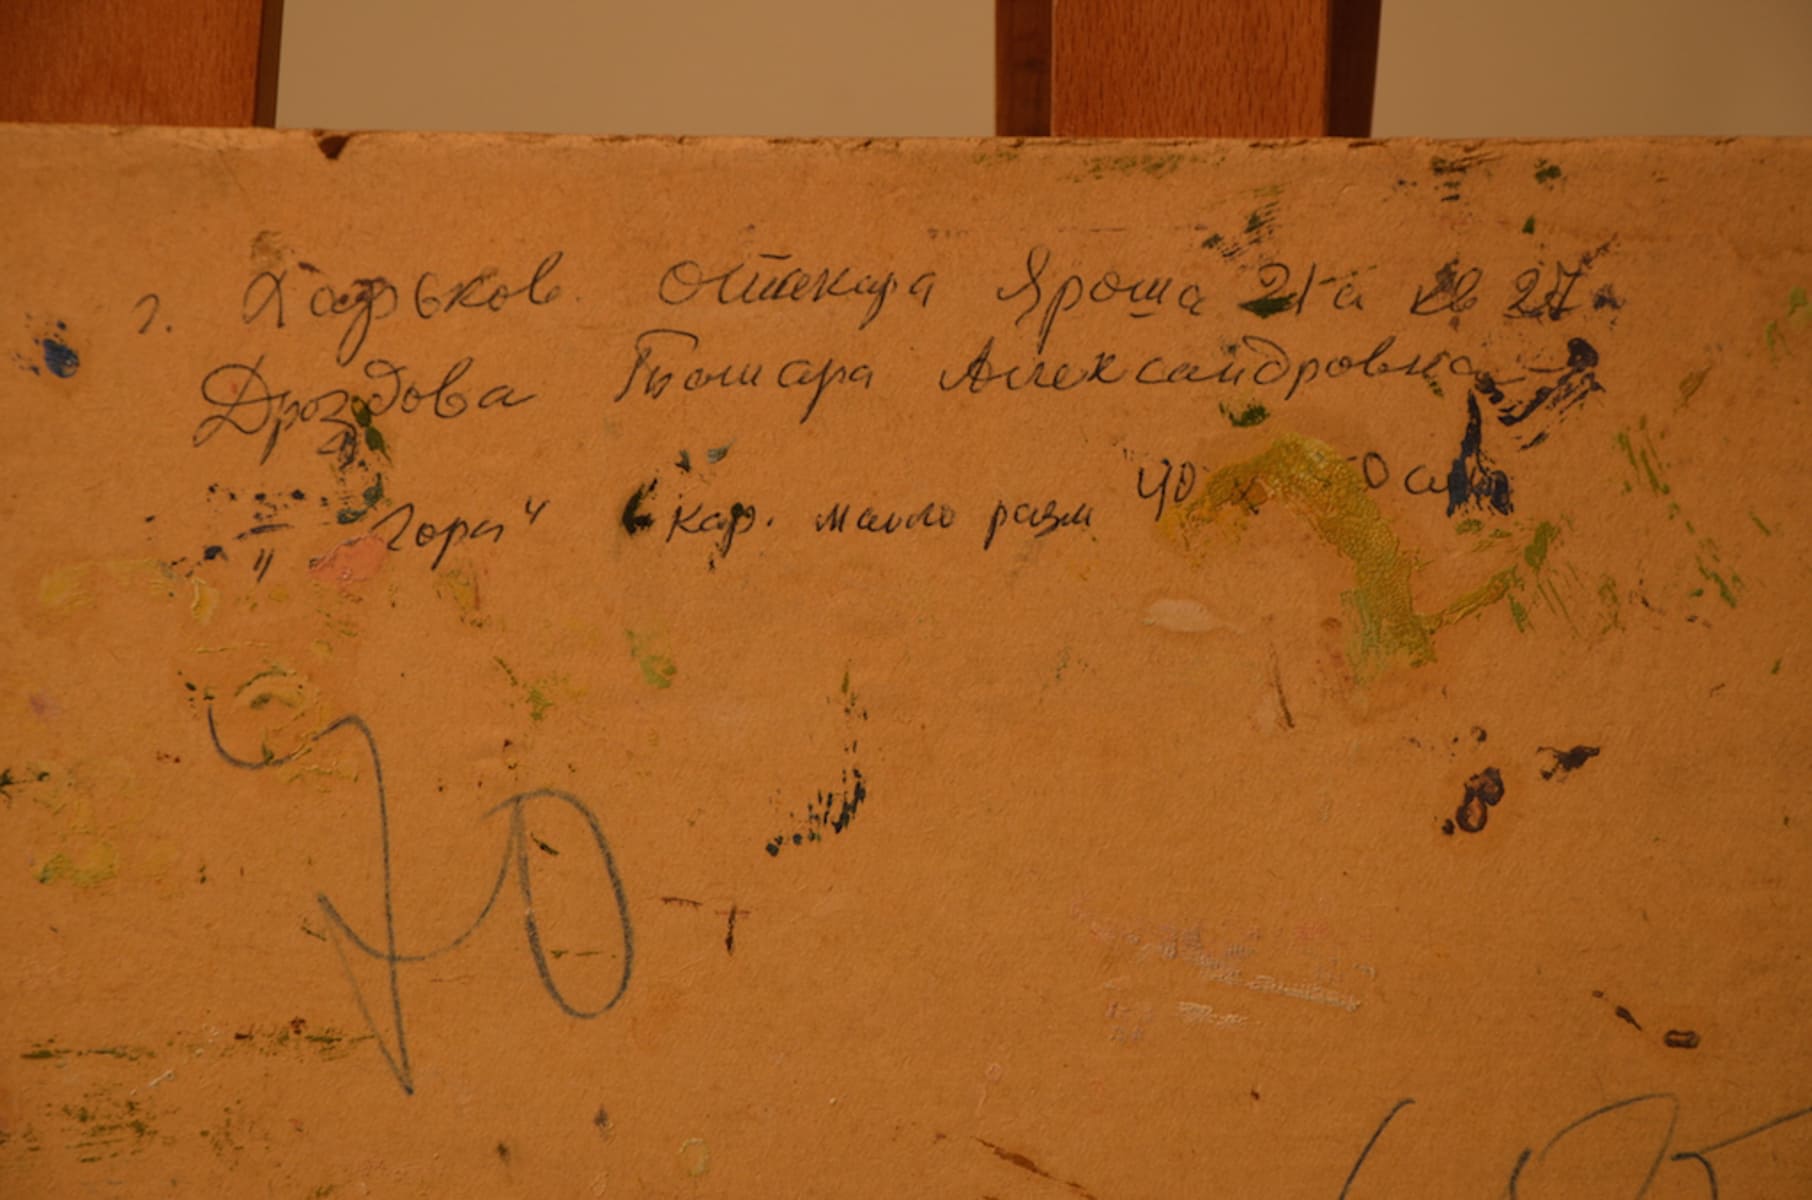 г. Харьков. Отакара Яроша 21-а кв 27
Дроздова Тамара Александровна
"Гора" кар. масло разм 40 х 50 см